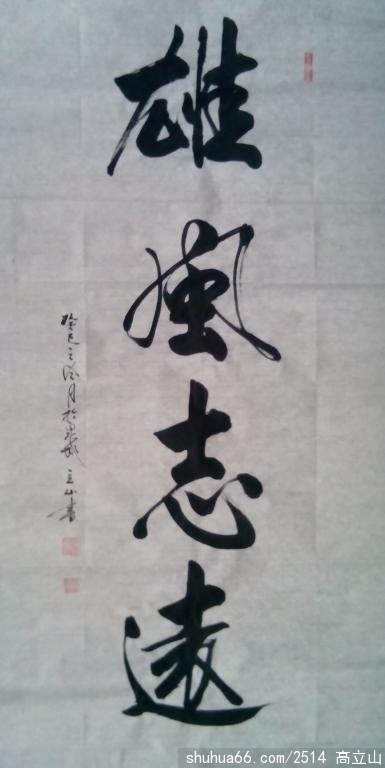 雄風志遠
癸巳之 月於 立山書
shuhua66.com/2514 高立山